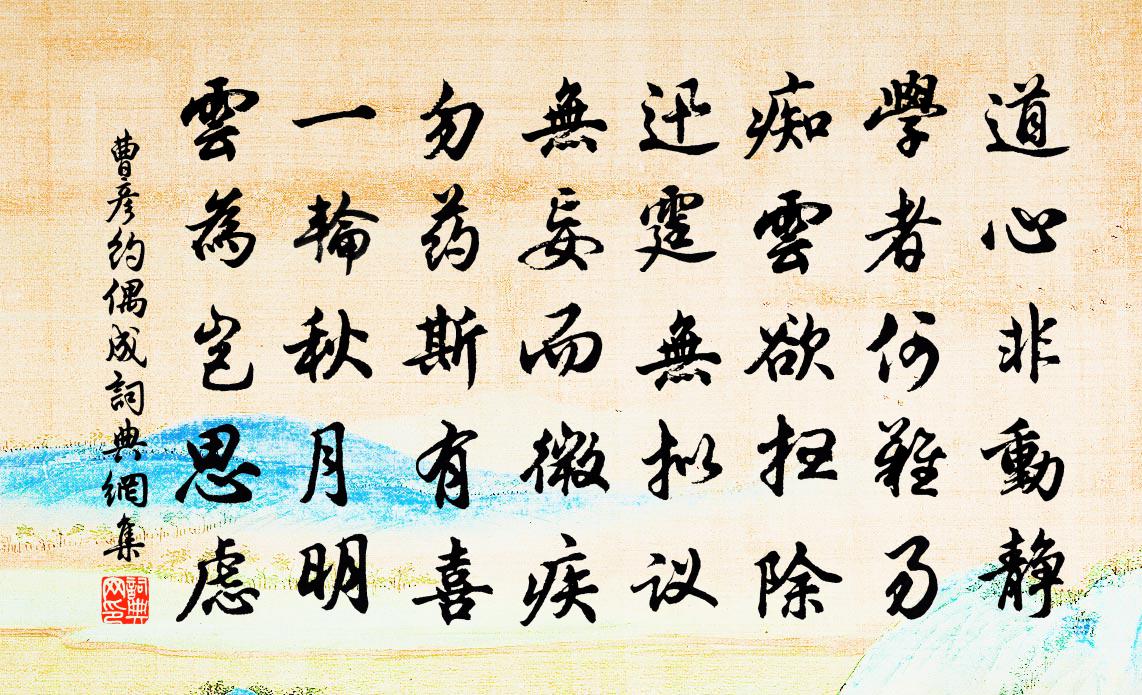 道心非動静
學者何難易
痴雲欲扫除
迅霆無拟议
無妄而微疾
勿药斯有喜
一輪秋月明
雲為岂思虑
曹彦约偶成詞典網集
詞典网印